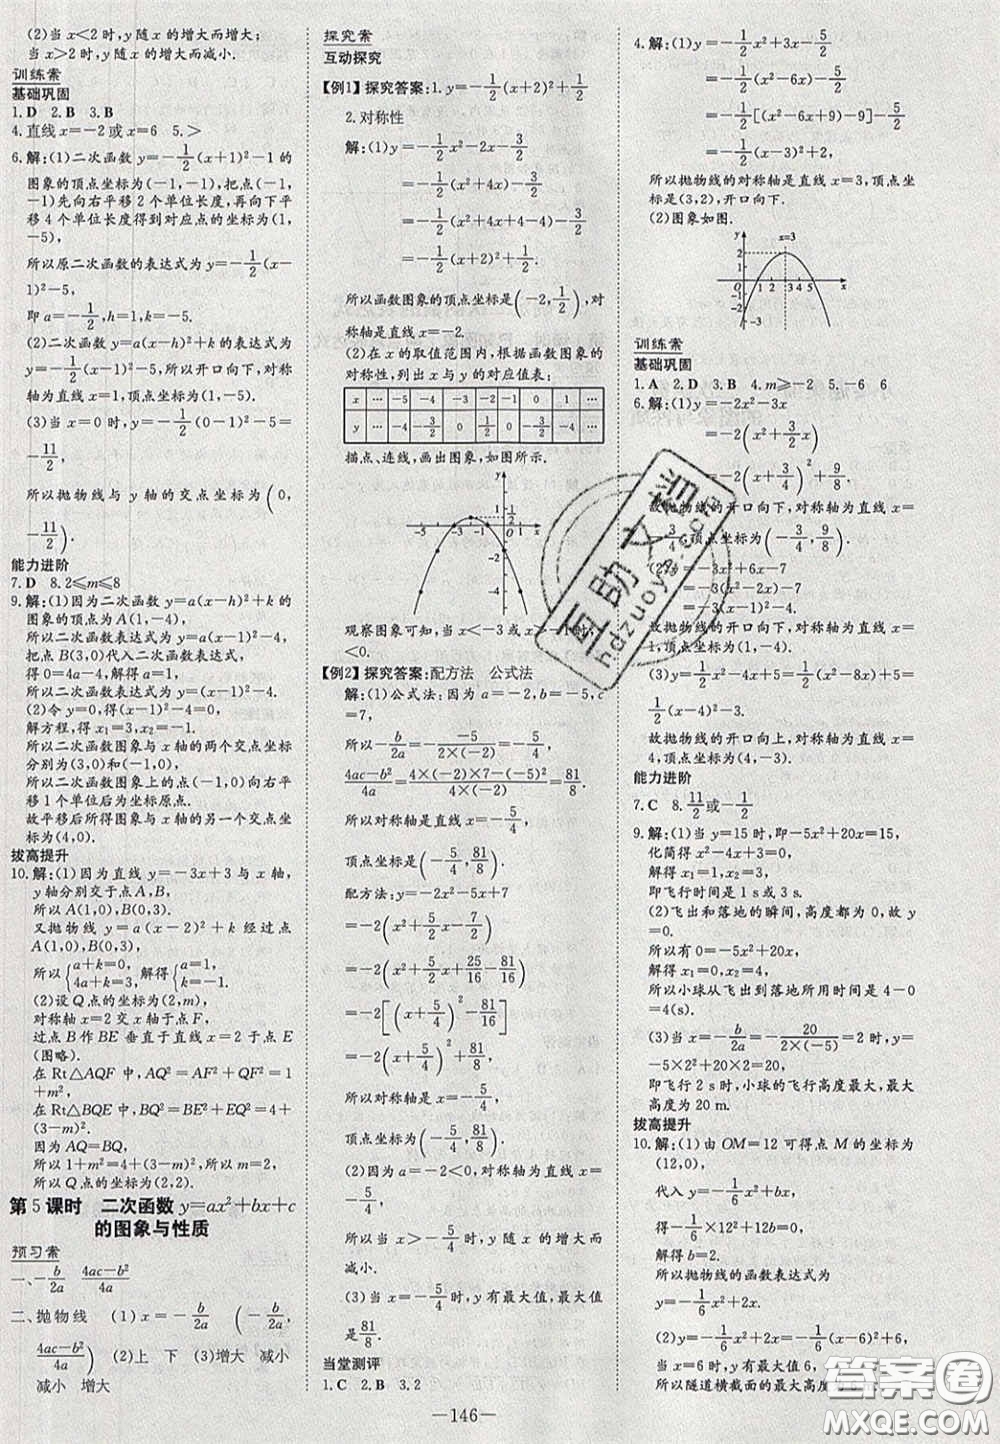 (2)当x<2时,y随x的增大而增大;
当x>2时,y随x的增大而减小.
训练案
基础巩固
1.D 2.B 3.B
4.直线x=-2或x=6 5.>
6.解:(1)二次函数y=-1/2(x+1)²-1的
图象的顶点坐标为(-1,-1),把点(-1,
-1)先向右平移2个单位长度,再向下平
移4个单位长度得到对应点的坐标为(1,
-5),
所以原二次函数的表达式为y=-1/2(x-
1)²-5,
即a=-1/2,h=1,k=-5.
(2)二次函数y=a(x-h)²+k,即
y=-1/2(x-1)²-5,所以开口向下,对称
轴为直线x=1,顶点坐标为(1,-5).
(3)当x=0时,y=-1/2(0-1)²-5=
-11/2,
所以抛物线与y轴的交点坐标为(0,
-11/2).
能力进阶
7.D 8.2≤m≤8
9.解:(1)因为二次函数y=a(x-h)²+k的
图象的顶点为A(1,-4),
所以二次函数表达式为y=a(x-1)²-4,
把点B(3,0)代入二次函数表达式,
得0=4a-4,解得a=1,
所以二次函数表达式为y=(x-1)²-4.
(2)令y=0,得(x-1)²-4=0,
解方程,得x₁=3,x₂=-1.
所以二次函数图象与x轴的两个交点坐标
分别为(3,0)和(-1,0),
所以二次函数图象上的点(-1,0)向右平
移1个单位后为坐标原点.
故平移后所得图象与x轴的另一个交点坐
标为(4,0).
拔高提升
10.解:(1)因为直线y=-3x+3与x轴,
y轴分别交于点A,B,
所以A(1,0),B(0,3).
又抛物线y=a(x-2)²+k经过点
A(1,0),B(0,3),
所以{a+k=0, 4a+k=3, 解得{a=1, k=-1.
(2)设Q点的坐标为(2,m),
对称轴x=2交x轴于点F,
过点B作BE垂直于直线x=2于点E
(图略).
在Rt△AQF中,AQ²=AF²+QF²=
1+m²,
在Rt△BQE中,BQ²=BE²+EQ²=4+
(3-m)².
因为AQ=BQ,
所以1+m²=4+(3-m)²,所以m=2,
所以Q点的坐标为(2,2).
第5课时 二次函数y=ax²+bx+c
的图象与性质
预习案
一、-b/2a (4ac-b²)/4a
二、抛物线 (1)x=-b/2a (-b/2a,
(4ac-b²)/4a) (2)上 下 (3)增大 减小
减小 增大
探究案
互动探究
【例1】探究答案:1.y=-1/2(x+2)²+1/2
2.对称性
解:(1)y=-1/2x²-2x-3/2
=-1/2(x²+4x)-3/2
=-1/2(x²+4x+4-4)-3/2
=-1/2(x+2)²+1/2.
所以函数图象的顶点坐标是(-2,1/2),对
称轴是直线x=-2.
(2)在x的取值范围内,根据函数图象的
对称性,列出x与y的对应值表:
x … -5 -4 -3 -2 -1 0 1 …
y … -4 -3/2 0 1/2 0 -3/2 -4 …
描点、连线,画出图象,如图所示.
y 1/2 -5 -3 -1 O 1 x -2 -4
观察图象可知,当x<-3或x>-1时,y
<0.
【例2】探究答案:配方法 公式法
解:(1)公式法:因为a=-2,b=-5,c
=7,
所以-b/2a=-(-5)/(2×(-2))=-5/4,
(4ac-b²)/4a=(4×(-2)×7-(-5)²)/(4×(-2))=81/8.
所以对称轴是直线x=-5/4,
顶点坐标是(-5/4,81/8).
配方法:y=-2x²-5x+7
=-2(x²+5/2x-7/2)
=-2(x²+5/2x+25/16-25/16-7/2)
=-2[(x+5/4)²-81/16]
=-2(x+5/4)²+81/8,
所以对称轴是直线x=-5/4,
顶点坐标为(-5/4,81/8).
(2)因为a=-2<0,对称轴为直线x
=-5/4,
所以当x>-5/4时,y随x的增大而
减小.
(3)当x=-5/4时,y有最大值,最大值
是81/8.
当堂测评
1.C 2.B 3.2
4.解:(1)y=-1/2x²+3x-5/2
=-1/2(x²-6x)-5/2
=-1/2[(x²-6x+9)-9]-5/2
=-1/2(x-3)²+2,
所以抛物线的对称轴是直线x=3,顶点坐
标是(3,2),开口向下.
(2)图象如图.
y x=3 2 1 O 1 2 3 4 5 x -1 -2 -3
训练案
基础巩固
1.A 2.D 3.B 4.m≥-2 5.-6 6
6.解:(1)y=-2x²-3x
=-2(x²+3/2x)
=-2(x+3/4)²+9/8,
故抛物线的开口向下,对称轴为直线x=
-3/4,顶点坐标为(-3/4,9/8).
(2)y=-3(x²-2x)-7
=-3(x-1)²-4,
故抛物线的开口向下,对称轴为直线x=
1,顶点坐标为(1,-4).
(3)y=1/2x²-4x+5=1/2(x²-8x)+5=
1/2(x-4)²-3,
故抛物线的开口向上,对称轴为直线x=
4,顶点坐标为(4,-3).
能力进阶
7.C 8.11/2或-1/2
9.解:(1)当y=15时,即-5x²+20x=15,
化简得x²-4x+3=0,
解得x₁=1,x₂=3.
即飞行时间是1s或3s.
(2)飞出和落地的瞬间,高度都为0,故y
=0.
所以有0=-5x²+20x,
解得x₁=0,x₂=4,
所以小球从飞出到落地所用时间是4-0
=4(s).
(3)当x=-b/2a=-20/(2×(-5))=2时,y=
-5×2²+20×2=20,
即飞行2s时,小球的飞行高度最大,最大
高度为20m.
拔高提升
10.解:(1)由OM=12可得点M的坐标为
(12,0),
代入y=-1/6x²+bx,得
-1/6×12²+12b=0,
解得b=2.
所以抛物线的函数表达式为
y=-1/6x²+2x.
(2)y=-1/6x²+2x=-1/6(x-6)²+6,
当x=6时,y有最大值6,
所以隧道横截面的最大高度为
—146—
互助文档
hdzuoye.com
答案圈
MXQE.COM